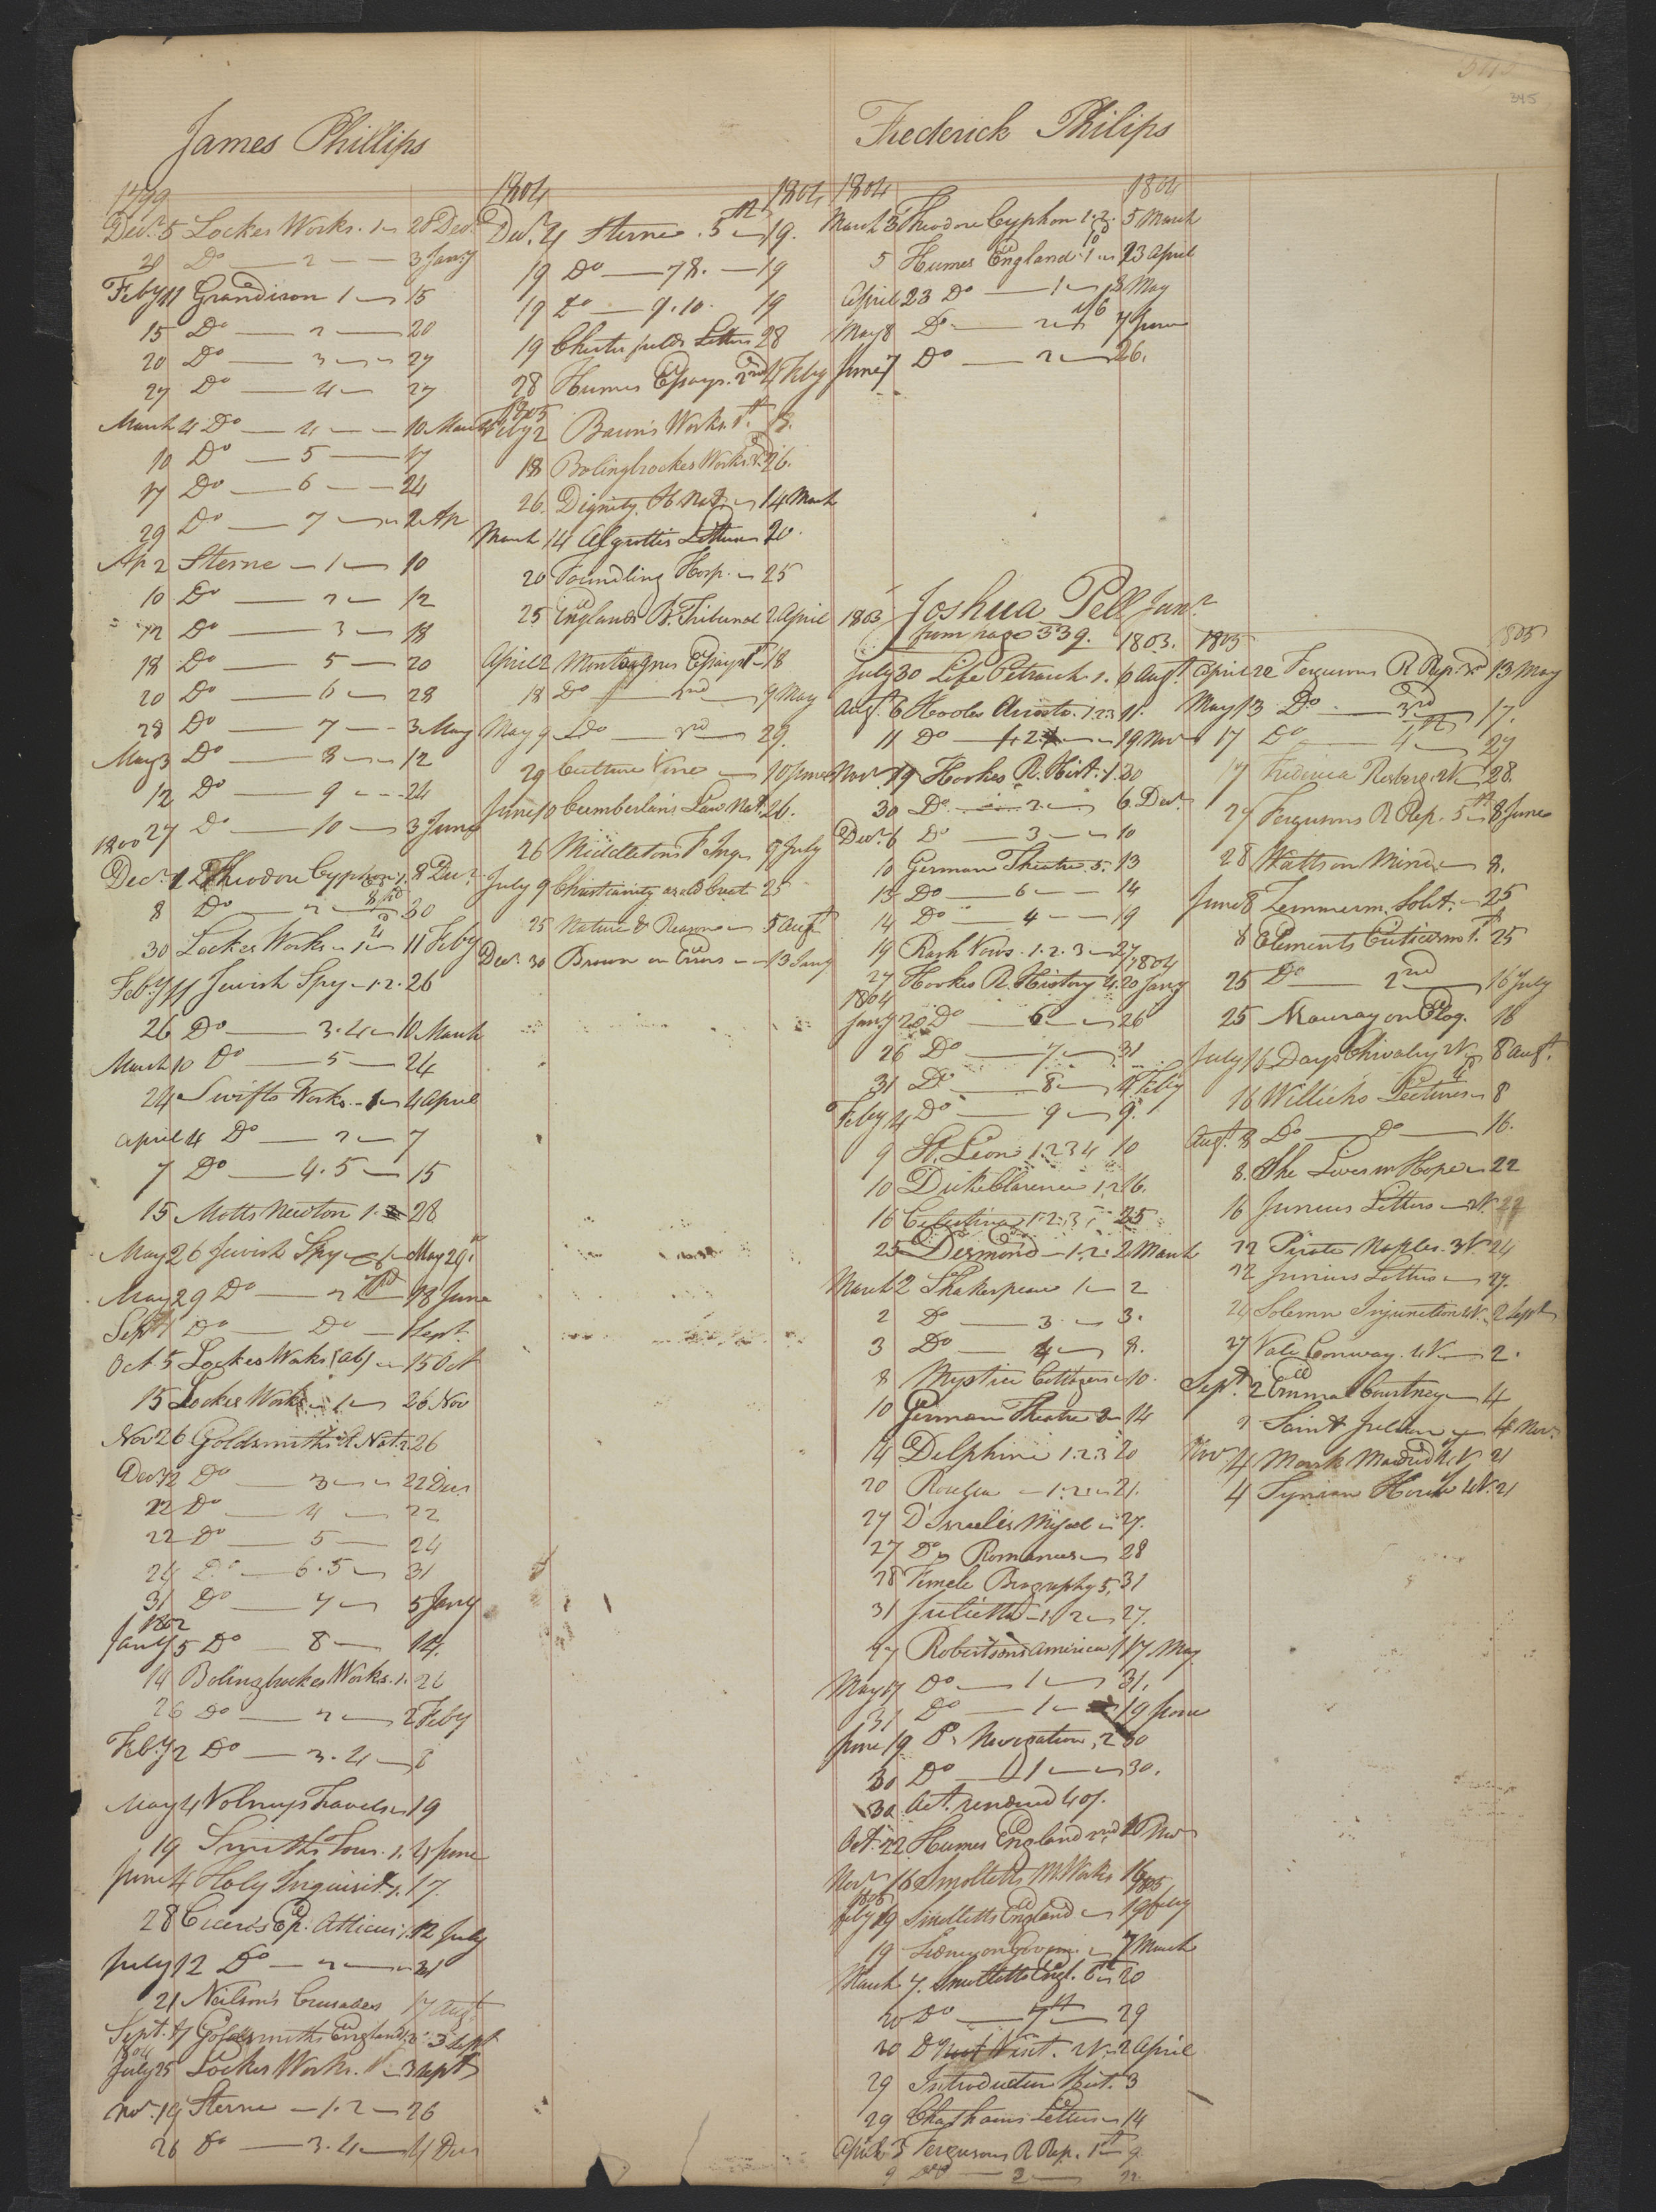 345
James Phillips
1799
Decr. 5 Lockes Works. 1 20 Decr.
20 Do 2 3 Jany
Feby 11 Grandison 1 15
15 Do 2 20
20 Do 3 27
27 Do 4 27
March 4 Do 4 10 March
10 Do 5 17
17 Do 6 24
29 Do 7 2 Ap
Ap 2 Sterne 1 10
10 Do 2 12
12 Do 3 18
18 Do 5 20
20 Do 6 28
28 Do 7 3 May
May 3 Do 8 12
12 Do 9 24
27 Do 10 3 June
1800
Decr. 1 Theodore Cyphon 1. 8 Decr.
8 Do 2 30
30 Lockes Works 1 11 Feby
Feby 11 Jewish Spy 1.2. 26
26 Do 3.4 10 March
March 10 Do 5 24
24 Swifts Works 1 4 April
April 4 Do 2 7
7 Do 4.5 15
15 Motts Newton 1. 28
May 26 Jewish Spy May 29
May 29 Do 2 18 June
Sept 1 Do Do Sept.
Oct. 5 Lockes Works (ab) 15 Oct
15 Lockes Works 1 26 Nov
Nov 26 Goldsmiths Nat. 2 26
Decr 2 Do 3 22 Decr
22 Do 4 22
22 Do 5 24
24 Do 6.5 31
31 Do 7 5 Jany
1802
Jany 5 Do 8 14.
14 Bolingbrokes Works. 1. 26
26 Do 2 2 Feby
Feby 2 Do 3.4
May 4 Volneys Travels 19
19 Smiths Tour. 1. 4 June
June 4 Holy Inquisit. 17.
28 Cicero's Ep. Atticus 1. 12 July
July 12 Do 2 21
21 Neilson's Crusades 17 Augt
Sept. 17 Goldsmiths England. 3 Sept
July 25 Lockes Works. 3 Sept
Nov. 19 Sterne 1.2 26
26 Do 3.4 4 Decr
1804 1804
Decr. 4 Sterne. 5 19.
19 Do 7 8. 19
19 Do 9.10. 19
19 Chesterfields Letters 28
28 Humes Essays. 2nd 4 Feby
1805
Feby 2 Bacon's Works. 1st. 18.
18 Bolingbrokes Works. 26.
26. Dignity H. Nat. 14 March
March 14 Algrottis Letters 20.
20 Foundling Hosp. 25
25 Englands B. Tribunal 2 April
April 2 Montagnes Essays 1st 18
18 Do 2nd 9 May
May 9 Do 3rd 29.
29 Culture Vine 10 June
June 10 Cumberlands Law Nat. 26.
26 Middletons F. Inqu. 9 July
July 9 Christianity as old Creat. 25
25 Nature & Reason 5 Augt
Decr. 30 Brown on Errors 13 Jany
Frederick Philips
1804 1804
March 3 Theodore Cyphon 1.2. 5 March
5 Humes England 1 23 April
April 23 Do 1 8 May
May 8 Do 2 7 June
June 7 Do 2 26.
Joshua Pell Junr
from page 339.
1803 1803.
July 30 Life Petrarch 1. 6 Augt.
Augt. 6 Hooles Ariosto. 1.2.3 11.
11 Do 19 Nov
Nov 19 Hookes R. Hist. 1. 30
30 Do 2. 6 Decr.
Decr. 6 Do 3 10
10 German Theatre. 5. 13
13 Do 6 14
14 Do 4 19
19 Rash Vows. 1.2.3 27
1804
27 Hookes R. History 4. 20 Jany
1804
Jany 20 Do 6 26
26 Do 7 31
31 Do 8 4 Feby
Feby 4 Do 9 9.
9 St. Leon 1 2 3 4 10
10 Duke Clarence 1.2 16.
16 Celestina 1.2.3 25
25 Desmond 1.2. 2 March
March 2 Shakespeare 1 2
2 Do 3 3.
3 Do 4 8.
8 Mystic Cottager 10.
10 German Theatre 2 14
14 Delphine 1.2.3 20
20 Rouzea 1.2 21.
27 D'Israelis Miscel 27.
27 Do Romances 28
28 Female Biography 5. 31
31 Julietta 1. 2 27.
27 Robertsons America 1 17 May
May 17 Do 1 31.
31 Do 1 19 June
June 19 P. Navigation. 2 30
30 Do 1 30.
30 Act. renewed 40/.
Oct. 22 Humes England 2nd 16 Nov
Novr. 16 Smolletts M. Works 16
1805 1805
Feby 19 Smolletts England 19 Feby
19 Sidney on Governt. 7 March
March 7. Smolletts Engl. 6th 20
20 Do 7th 29
20 Do 2 April
29 Introduction Hist. 3
29 Chathams Letters 14
April 3 Fergusons R Rep. 1st 9
9 Do 2 22
1805 1805
April 22 Fergusons R Rep. 3rd 13 May
May 13 Do 3rd 17.
17 Do 4th 27
17 Fredrica Risberg. 2V 28.
27 Fergusons R Rep. 5th 8 June
28 Watts on Mind 8.
June 8 Zimmerm. Solit. 25
8 Elements Criticism 1st. 25
25 Do 2nd 16 July
25 Maury on Eloq. 16
July 16 Days Chivalry 2V 8 Augt.
16 Willich's Lectures 8
Augt. 8 Do Do 16.
8. She Lives in Hope 22
16 Junius Letters 2V. 22
22 Pirate Naples. 3V. 24
22 Junius Letters 27.
24 Solemn Injunction 4V. 2 Sept
27 Vale Conway. 4V 2.
Sept. 2 Emma Courtney 4
2 Saint Julian 4 Nov.
Nov. 4 Monk Madrid 4V. 21
4 Tynian House 4V. 21